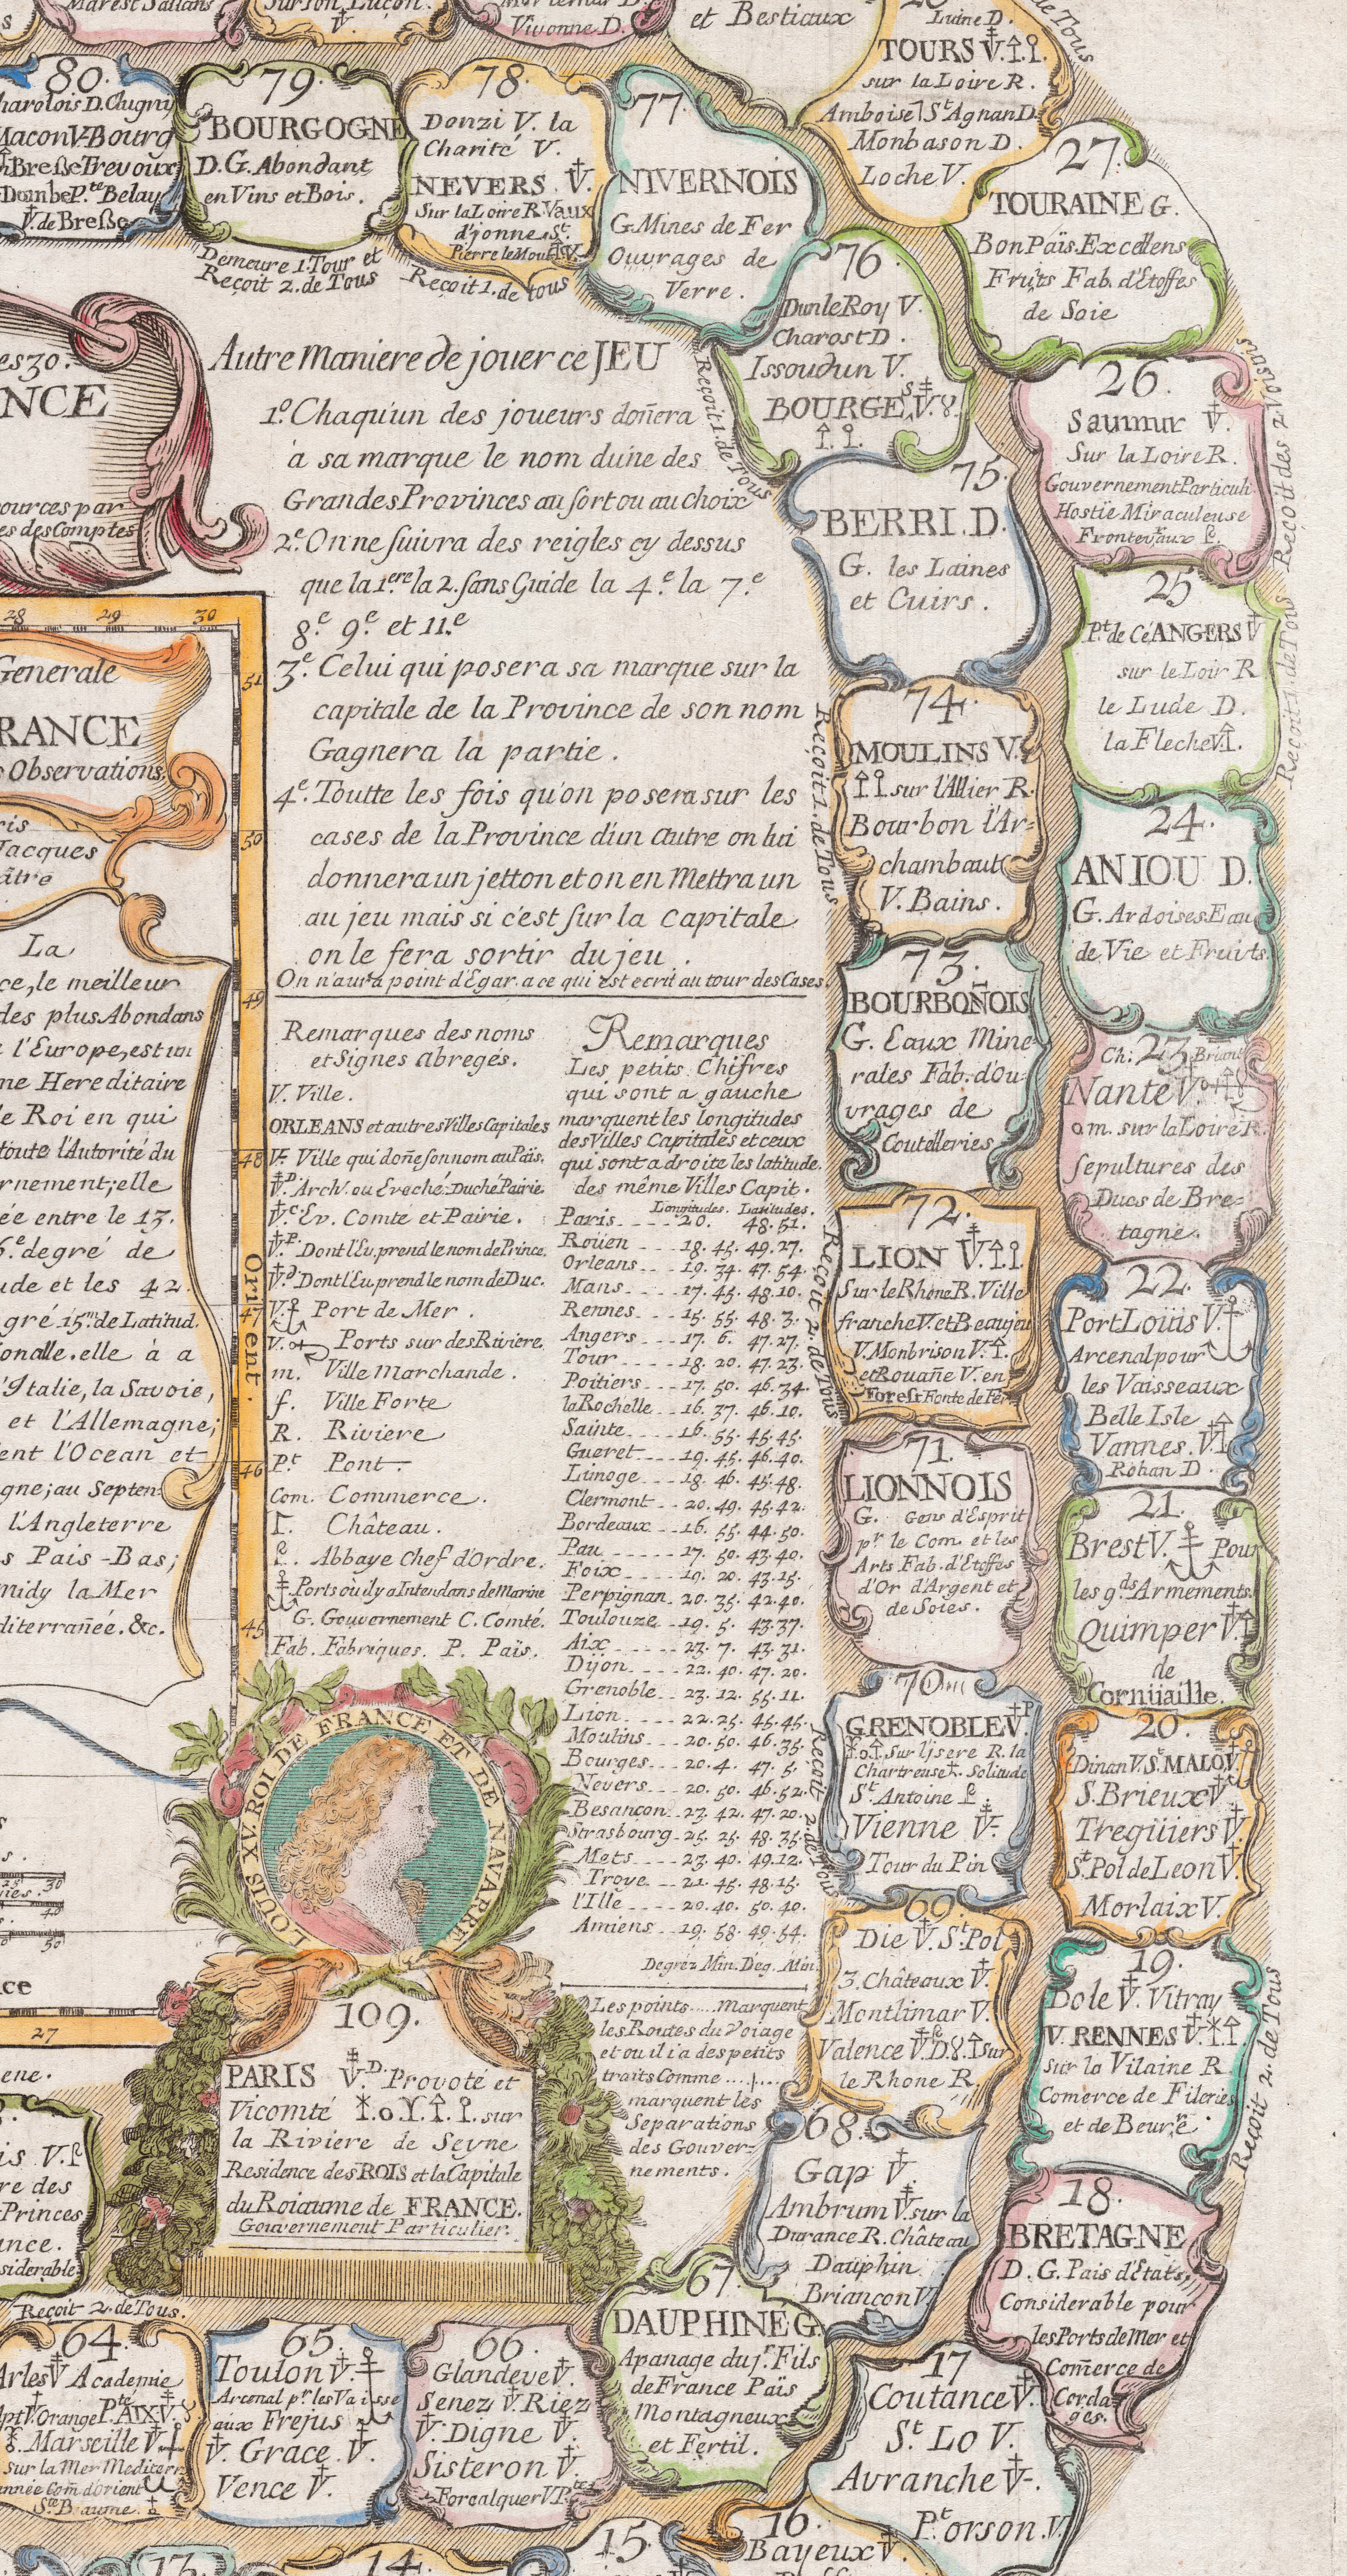 et Bestiaux
Vivonne D.
TOURS V.
sur la Loire R.
Amboise St Agnan D.
Monbason D.
Loche V.
80.
Charolois D. Clugny
Macon V. Bourg
Breße Trevoux
Dombe Pte Belay
V. de Breße
79.
BOURGOGNE
D.G. Abondant
en Vins et Bois.
Demeure 1. Tour et
Reçoit 2. de Tous
78.
Donzi V. la
Charité V.
NEVERS. V.
Sur la Loire R. Vaux
d'jonne St.
Pierre le Mout V.
Reçoit 1. de tous
77.
NIVERNOIS
G. Mines de Fer
Ouvrages de
Verre.
76.
Dun le Roy V.
Charost D.
Issoudun V.
BOURGES V. 8.
Reçoit 1. de Tous
27.
TOURAINE G.
Bon Païs. Excellens
Fruits Fab. d'Etoffes
de Soie
26.
Saumur V.
Sur la Loire R.
Gouvernement Particuli.
Hostie Miraculeuse
Frontevaux
Reçoit des 2 Voisins
75.
BERRI. D.
G. les Laines
et Cuirs.
25.
Pt. de Cé ANGERS V
sur le Loir R
le Lude D.
la Fleche V.
Reçoit 1. de Tous
74.
MOULINS V.
sur l'Allier R.
Bourbon l'Ar-
chambaut
V. Bains.
Reçoit 1. de Tous
24.
ANIOU D.
G. Ardoises. Eau
de Vie et Fruirts.
73.
BOURBONOIS
G. Eaux Mine
rales Fab. d'Ou
vrages de
Coutelleries
23.
Nante V.
om. sur la Loire R.
sepultures des
Ducs de Bre-
tagne.
72.
LION V.
Sur le Rhone R. Ville
franche V. et Beaujeu
V. Monbrison V.
et Rouañe V. en
Forest Fonte de Fer.
Reçoit 2. de Tous
22.
Port Loüis V.
Arcenal pour
les Vaisseaux
Belle Isle
Vannes. V.
Rohan D.
71.
LIONNOIS
G. Gens d'Esprit
pr. le Com. et les
Arts Fab. d'Etoffes
d'Or d'Argent et
de Soies.
21.
Brest V. Pour
les gds Armements.
Quimper V.
de
Cornüaille.
70.
GRENOBLE V.
Sur l'jsere R. la
Chartreuse. Solitude
St. Antoine
Vienne V.
Tour du Pin
Reçoit 2. de Tous
20.
Dinan V. St. MALO. V.
S. Brieux V.
Tregüiers V.
St. Pol de Leon V.
Morlaix V.
69.
Die V. St. Pol
3. Châteaux V.
Montlimar V.
Valence V. D. 8. sur
le Rhone R.
19.
Dole V. Vitray
V. RENNES V.
sur la Vilaine R
Comerce de Fileries
et de Beurre
Reçoit 2 de Tous
68.
Gap V.
Ambrum V. sur la
Durance R. Château
Dauphin
Briançon V.
18.
BRETAGNE
D. G. Païs d'Etats,
Considerable pour
les Ports de Mer et
Com̄erce de
Corda-
ges.
67.
DAUPHINE G.
Apanage du jr. Fils
de France Païs
Montagneux
et Fertil.
17
Coutance V.
St. Lo V.
Avranche V.
Pt. orson. V.
16.
Bayeux V.
15.
14.
13.
Autre Maniere de jouer ce JEU
1o. Chaqu'un des joueurs doñera
à sa marque le nom d'une des
Grandes Provinces au sort ou au choix
2e. On ne suivra des reigles cy dessus
que la 1ere la 2. sans Guide la 4e. la 7e.
8e. 9e. et 11e.
3e. Celui qui posera sa marque sur la
capitale de la Province de son nom
Gagnera la partie.
4e. Toutte les fois qu'on posera sur les
cases de la Province d'un autre on lui
donnera un jetton et on en Mettra un
au jeu mais si c'est sur la Capitale
on le fera sortir du jeu.
On n'aura point d'Egar. a ce qui est ecrit au tour des Cases.
Remarques des noms
et Signes abregés.
V. Ville.
ORLEANS et autres Villes Capitales
V. Ville qui doñe son nom au Païs.
V.D. Arch. ou Eveché. Duché Pairie.
V.c. Ev. Comté et Pairie.
V.P. Dont l'Eu. prend le nom de Prince.
V.D. Dont l'Eu prend le nom de Duc.
V. Port de Mer.
V. Ports sur des Riviere.
m. Ville Marchande.
f. Ville Forte
R. Riviere
Pt. Pont.
Com. Commerce.
Château.
Abbaye Chef d'Ordre.
Ports ou il y a Intendans de Marine
G. Gouvernement C. Comté.
Fab. Fabriques. P. Païs.
Remarques
Les petits Chifres
qui sont a gauche
marquent les longitudes
des Villes Capitales et ceux
qui sont a droite les latitude.
des même Villes Capit.
Longitudes. Latitudes.
Paris 20. 48. 51.
Roüen 18. 45. 49. 27.
Orleans 19. 34. 47. 54.
Mans 17. 45. 48. 10.
Rennes 15. 55. 48. 3.
Angers 17. 6. 47. 27.
Tour 18. 20. 47. 23.
Poitiers 17. 50. 46. 34.
la Rochelle 16. 37. 46. 10.
Sainte 16. 55. 45. 45.
Gueret 19. 45. 46. 40.
Limoge 18. 46. 45. 48.
Clermont 20. 49. 45. 42.
Bordeaux 16. 55. 44. 50.
Pau 17. 50. 43. 40.
Foix 19. 20. 43. 15.
Perpignan 20. 35. 42. 40.
Toulouze 19. 5. 43. 37.
Aix 23. 7. 43. 31.
Dijon 22. 40. 47. 20.
Grenoble 23. 12. 55. 11.
Lion 22. 25. 45. 45.
Moulins 20. 50. 46. 35.
Bourges 20. 4. 47. 5.
Nevers 20. 50. 46. 52.
Besancon 23. 42. 47. 20.
Strasbourg 25. 25. 48. 35.
Mets 23. 40. 49. 12.
Troye 21. 45. 48. 15.
l'Ille 20. 40. 50. 40.
Amiens 19. 58. 49. 54.
Degrez Min. Deg. Min.
Les points.... Marquent
les Routes du Voiage
et ou il i a des petits
traits Comme
marquent les
Separations
des Gouver-
nements.
es 30.
NCE
ources par
es des Comptes
28 29 30
Generale
RANCE
Observations
ris
Jacques
âtre
La
ce, le meilleur
des plus Abondans
l'Europe, est un
me Hereditaire
le Roi en qui
toute l'Autorité du
rnement; elle
ée entre le 13.
degré de
ude et les 42.
gré 15m. de Latitud.
onalle. elle à a
l'Italie, la Savoie,
et l'Allemagne;
ent l'Ocean et
gne; au Septen-
l'Angleterre
s Pais-Bas;
midy la Mer
diterrañée. &c.
51
50
49
48
47
46
45
Orient.
LOUIS XV. ROI DE FRANCE ET DE NAVARRE
109.
PARIS V.D. Provoté et
Vicomté sur
la Riviere de Seyne
Residence des ROIS et la Capitale
du Roiaume de FRANCE.
Gouvernement Particulier.
27
re des
Princes
ance.
siderable
Reçoit 2. de Tous.
64.
Arles V Academie
Apt V. Orange Pte. AIX. V.
Marseille V.
sur la Mer Mediterr
année Com̄. d'Orient
Ste. Baume.
65.
Toulon V.
Arcenal pr. les Vaisse
aux Frejus
V. Grace. V.
Vence V.
66.
Glandeve V.
Senez V. Riez
V. Digne V.
Sisteron V.
Forcalquer V. Pte.